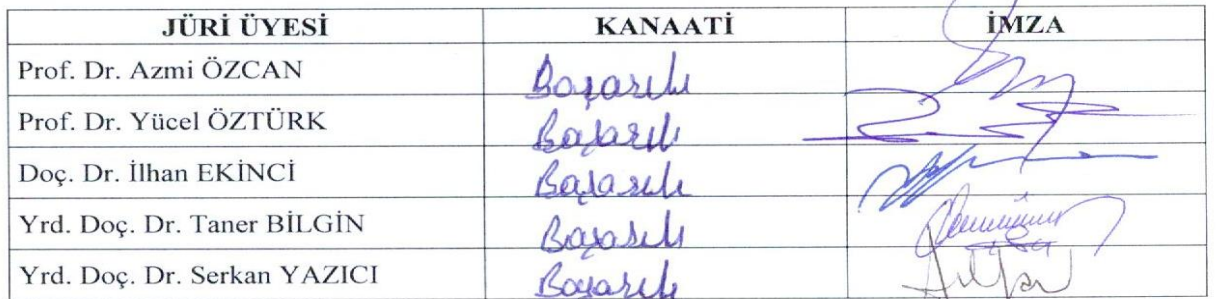 JÜRİ ÜYESİ KANAATİ İMZA
Prof. Dr. Azmi ÖZCAN Başarılı
Prof. Dr. Yücel ÖZTÜRK Başarılı
Doç. Dr. İlhan EKİNCİ Başarılı
Yrd. Doç. Dr. Taner BİLGİN Başarılı
Yrd. Doç. Dr. Serkan YAZICI Başarılı